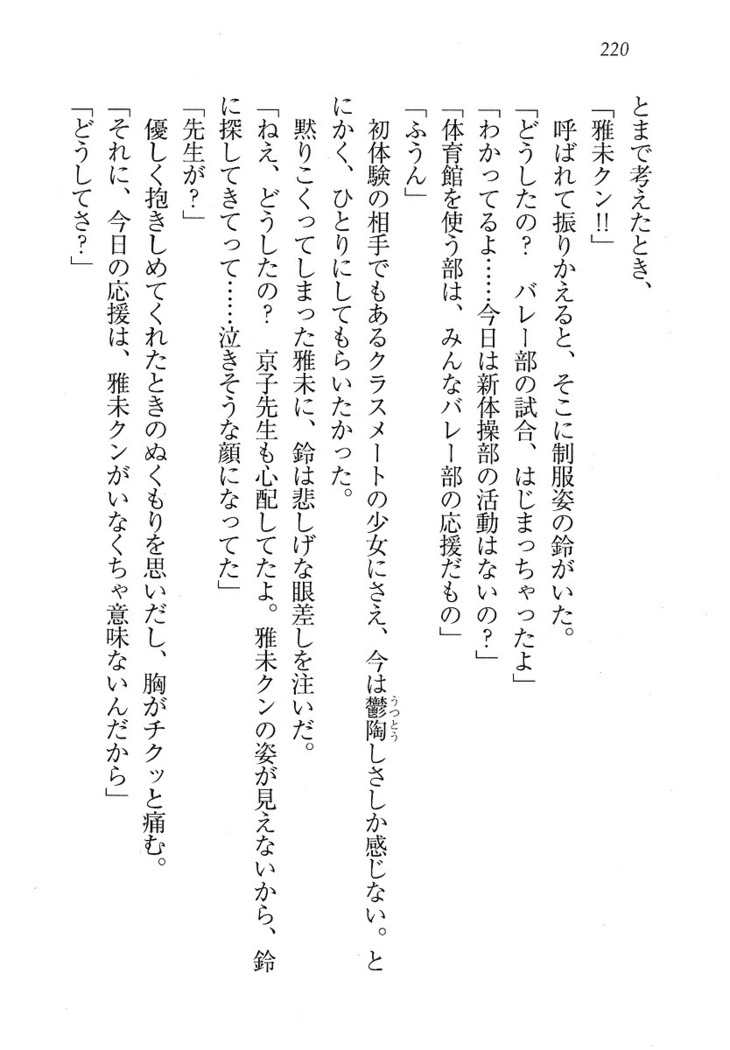 220
とまで考えたとき、
「雅未クン!!」
呼ばれて振りかえると、そこに制服姿の鈴がいた。
「どうしたの?　バレー部の試合、はじまっちゃったよ」
「わかってるよ……今日は新体操部の活動はないの?」
「体育館を使う部は、みんなバレー部の応援だもの」
「ふうん」
初体験の相手でもあるクラスメートの少女にさえ、今は鬱陶しさしか感じない。と
うつとう
にかく、ひとりにしてもらいたかった。
黙りこくってしまった雅未に、鈴は悲しげな眼差しを注いだ。
「ねえ、どうしたの?　京子先生も心配してたよ。雅未クンの姿が見えないから、鈴
に探してきてって……泣きそうな顔になってた」
「先生が?」
優しく抱きしめてくれたときのぬくもりを思いだし、胸がチクッと痛む。
「それに、今日の応援は、雅未クンがいなくちゃ意味ないんだから」
「どうしてさ?」